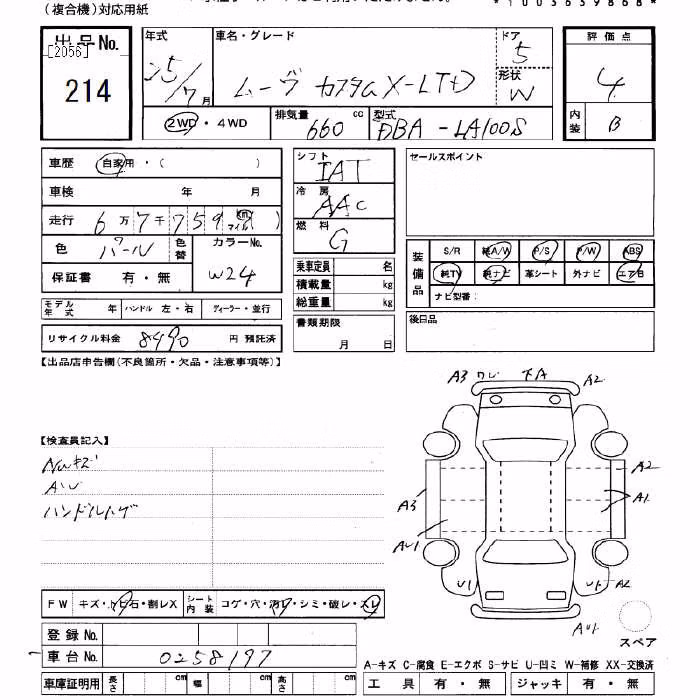 (複合機)対応用紙
*1003639868*
出品No.
[2056]
214
年式
25/7月
車名・グレード
ムーヴ カスタム X-LTD
ドア
5
形状
W
評価点
4
内装
B
2WD・4WD
排気量
660 cc
型式
DBA-LA100S
車歴 自家用・( )
車検 年 月
走行 6万7千759 km マイル( )
色 パール
色替
カラーNo.
W24
保証書 有・無
モデル年式 年 ハンドル 左・右 ディーラー・並行
リサイクル料金 8490 円 預託済
シフト
IAT
冷房
AAC
燃料
G
乗車定員 名
積載量 kg
総重量 kg
書類期限
月 日
セールスポイント
装備品
S/R 純A/W P/S P/W ABS
純TV 純ナビ 革シート 外ナビ エアB
ナビ型番:
後日品
【出品店申告欄(不良箇所・欠品・注意事項等)】
【検査員記入】
Naキズ
AW
ハンドルハゲ
A3 ワレ 下A A2
A2
A3 A1
AU1
U1 U1 A2
AU1
スペア
FW キズ・トビ石・割レX シート内装 コゲ・穴・汚レ・シミ・破レ・スレ
登録No.
車台No. 0258197
車庫証明用 長さ cm 幅 cm 高さ cm
A-キズ C-腐食 E-エクボ S-サビ U-凹ミ W-補修 XX-交換済
工具 有・無 ジャッキ 有・無